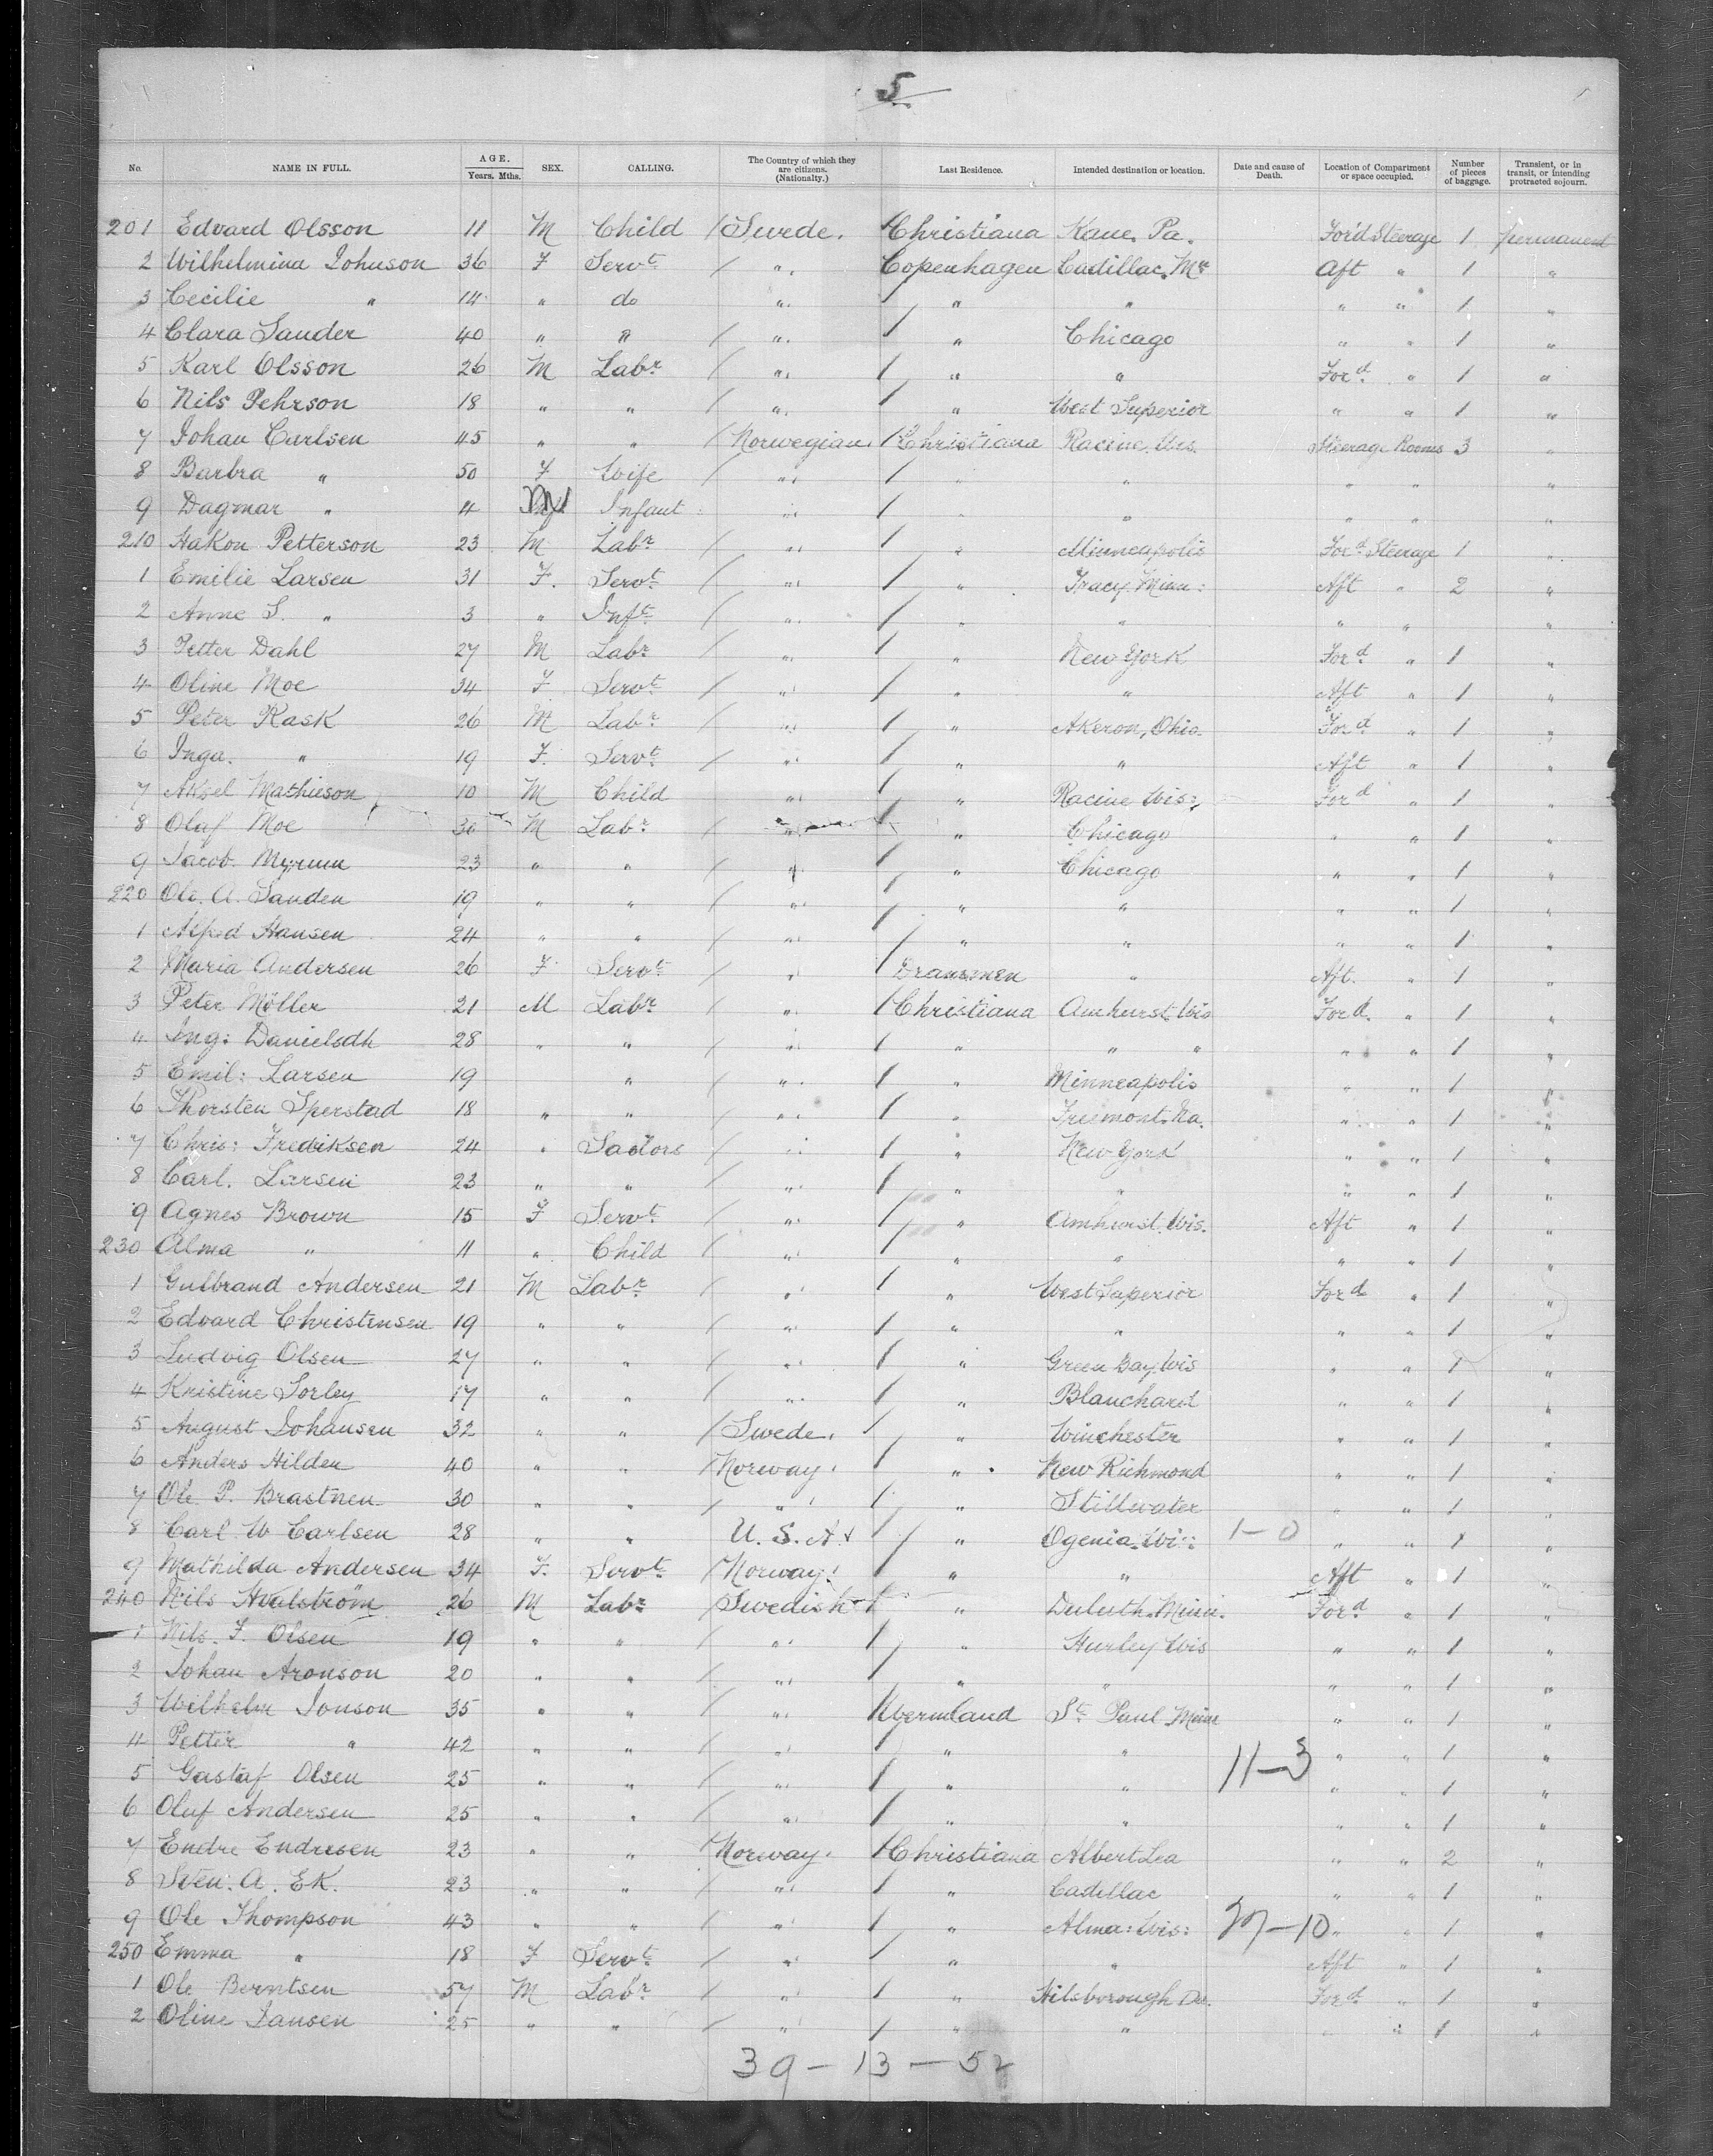 5
No. NAME IN FULL. AGE. Years. Mths. SEX. CALLING. The Country of which they are citizens. (Nationalty.) Last Residence. Intended destination or location. Date and cause of Death. Location of Compartment or space occupied. Number of pieces of baggage. Transient, or in transit, or intending protracted sojourn.
201 Edvard Olsson 11 M Child / Swede. / Christiana Kane. Pa. For'd Steerage 1 permanent
2 Wilhelmina Johnson 36 F Servt / " Copenhagen Cadillac. Aft " 1 "
3 Cecilie " 14 " do " / " " " " 1 "
4 Clara Sander 40 " " / " / " Chicago " " 1 "
5 Karl Olsson 26 M Labr / " / " " Ford " 1 "
6 Nils Pehrson 18 " " / " / " West Superior " " 1 "
7 Johan Carlsen 45 " " / Norwegian / Christiana Racine. Wis. Steerage Rooms 3 "
8 Barbra " 50 F Wife / " / " " " " "
9 Dagmar " 4 Infant " / " " " " "
210 Hakon Petterson 23 M Labr / " / " Minneapolis Ford Steerage 1 "
1 Emilie Larsen 31 F. Servt / " / " Tracy. Minn: Aft " 2 "
2 Anne S. " 3 " Inft / " / " " " " "
3 Petter Dahl 27 M Labr / " / " New York Ford " 1 "
4 Oline Moe 34 F Servt / " / " " Aft " 1 "
5 Peter Rask 26 M Labr / " / " Akeron, Ohio. Ford " 1 "
6 Inga. " 19 F. Servt / " / " " Aft " 1 "
7 Aksel Mathieson 10 M Child " / " Racine Wis: Ford " 1 "
8 Olaf Moe 30 M Labr / " / " Chicago " " 1 "
9 Jacob. Myrum 23 " " / " / " Chicago " " 1 "
220 Ole. A. Sanden 19 " " / " / " " " " 1 "
1 Alfred Hansen 24 " " / " / " " " " 1 "
2 Maria Andersen 26 F Servt / " / Drammen " Aft. " 1 "
3 Peter Möller 21 M Labr / " / Christiana Amhurst. Wis Ford. " 1 "
4 Ing: Danielsdh 28 " " / " / " " " " " 1 "
5 Emil: Larsen 19 " / " / " Minneapolis " " 1 "
6 Thorsten Sperstad 18 " " / " / " " " 1 "
7 Chris: Frediksen 24 " Sailors / " / " New York " " 1 "
8 Carl. Larsen 23 " " / " / " " " " 1 "
9 Agnes Brown 15 F Servt / " / " Amhurst. Wis. Aft " 1 "
230 Alma " 11 " Child / " / " " " " 1 "
1 Gulbrand Andersen 21 M Labr / " / " West Superior Ford " 1 "
2 Edvard Christensen 19 " " / " / " " " " 1 "
3 Ludvig Olsen 27 " " / " / " Green Bay Wis " " 1 "
4 Kristine Sorley 17 " " / " / " Blanchard " " 1 "
5 August Johansen 32 " " / Swede. / " Winchester " " 1 "
6 Anders Hilden 40 " " / Norway. / " New Richmond " " 1 "
7 Ole. P. Brastnen 30 " " / " / " Stillwater " " 1 "
8 Carl W Carlsen 28 " " U. S. A + / " Ogenia. Wi: 1-0 " " 1 "
9 Mathilda Andersen 34 F. Servt / Norway. / " " Aft " 1 "
240 Nils 26 M Labr / Swedish / " Duluth. Minn. Ford " 1 "
1 Nils. F. Olsen 19 " " / " / " Hurley Wis " " 1 "
2 Johan Aronson 20 " " / " / " " " " 1 "
3 Wilhelm Jonson 35 " " / " / Wermland St Paul Minn " " 1 "
4 Petter " 42 " " / " / " " " " 1 "
5 Gastaf Olsen 25 " " / " / " " 11-3 " " 1 "
6 Oluf Andersen 25 " " / " / " " " " 1 "
7 Endre Endresen 23 " " / Norway. / Christiana Albert Lea " " 2 "
8 Sven. A. EK. 23 " " / " / " Cadillac " " 1 "
9 Ole Thompson 43 " " / " / " Alma: Wis: 27-10 " " 1 "
250 Emma " 18 F Servt / " / " " Aft " 1 "
1 Ole Berntsen 57 M Labr / " / " Hilsborough Ford " 1 "
2 Oline Jansen 25 " " / " / " " " " 1 "
39 - 13 - 52